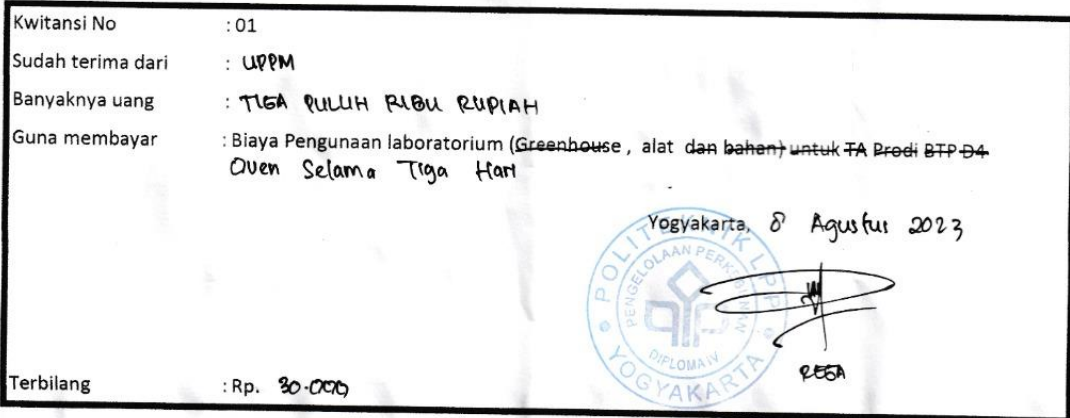 Kwitansi No : 01
Sudah terima dari : UPPM
Banyaknya uang : TIGA PULUH RIBU RUPIAH
Guna membayar : Biaya Pengunaan laboratorium (Greenhouse , alat dan bahan) untuk TA Prodi BTP D4
Oven Selama Tiga Hari
Yogyakarta, 8 Agustus 2023
POLITEKNIK LPP
PENGELOLAAN PERKEBUNAN
DIPLOMA IV
YOGYAKARTA
REGA
Terbilang : Rp. 30.000